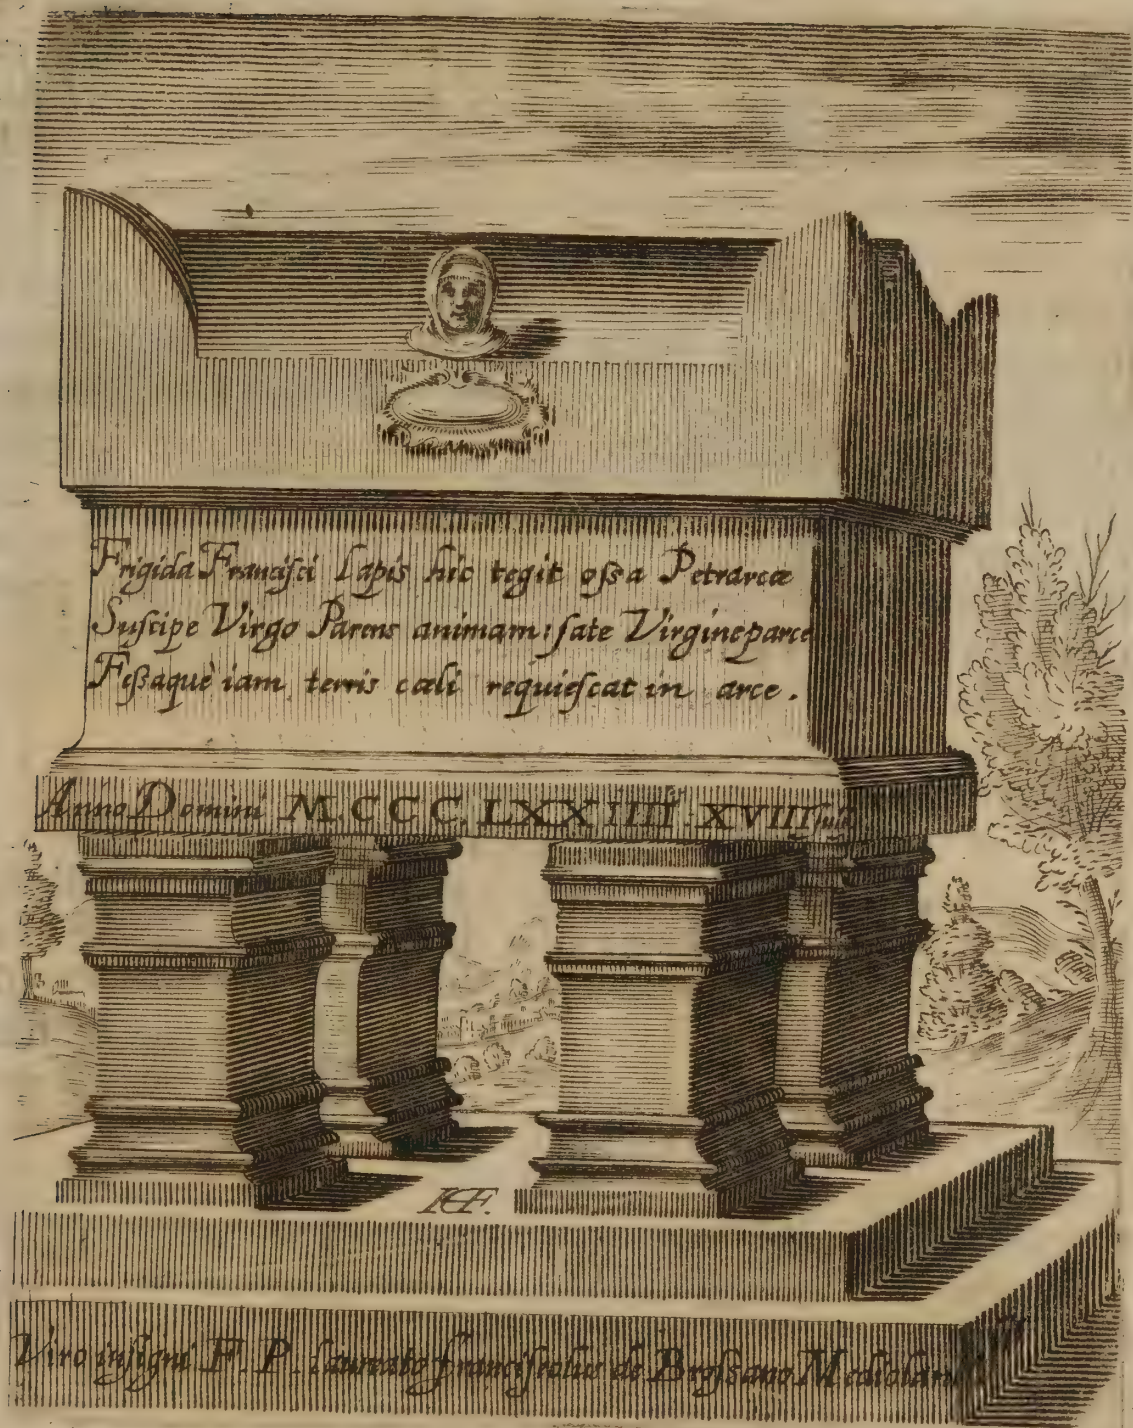 Frigida Francisci Lapis hic tegit ossa Petrarcæ
Suscipe Virgo Parens animam: sate Virgine parce
Fessaquè iam terris cœli requiescat in arce.
Anno Domini M.CCC.LXXIIII.XVIII
HF.
Viro insigni F. P. laureato Franciscolus de Brossano Mediolan